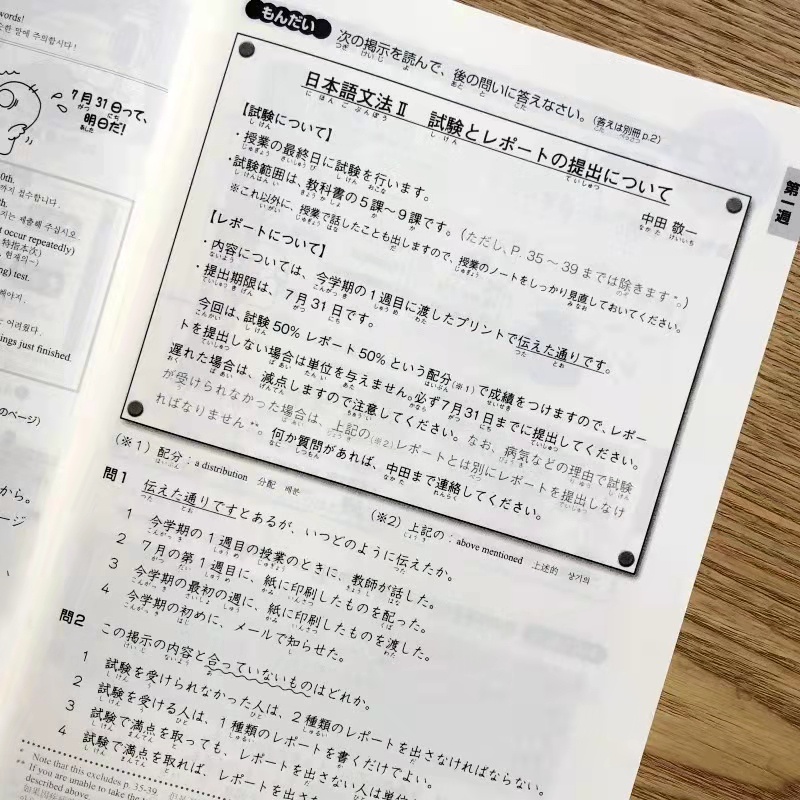 words!
순한 말에 주의합시다!
7月31日って、
明日だ!
0th.
까지 접수합니다.
th.
거는 제출해 주십시오
t occur repeatedly)
特指本次)
, 현재의~)
ng) test.
해야지.
는 어려웠다.
nings just finished.
のページ)
から。
ージ
もんだい 次の掲示を読んで、後の問いに答えなさい。(答えは別冊p.2)
日本語文法Ⅱ 試験とレポートの提出について
中田 敬一
【試験について】
・授業の最終日に試験を行います。
・試験範囲は、教科書の5課~9課です。(ただし、P. 35~39までは除きます*。)
※これ以外に、授業で話したことも出しますので、授業のノートをしっかり見直しておいてください。
【レポートについて】
・内容については、今学期の1週目に渡したプリントで伝えた通りです。
・提出期限は、7月31日です。
今回は、試験50% レポート50%という配分(※1)で成績をつけますので、レポー
トを提出しない場合は単位を与えません。必ず7月31日までに提出してください。
遅れた場合は、減点しますので注意してください。なお、病気などの理由で試験
が受けられなかった場合は、上記の(※2)レポートとは別にレポートを提出しなけ
ればなりません**。何か質問があれば、中田まで連絡してください。
(※1)配分:a distribution 分配 배분
(※2)上記の:above mentioned 上述的 상기의
第一週
問1 伝えた通りですとあるが、いつどのように伝えたか。
1 今学期の1週目の授業のときに、教師が話した。
2 7月の第1週目に、紙に印刷したものを配った。
3 今学期の最初の週に、紙に印刷したものを渡した。
4 今学期の初めに、メールで知らせた。
問2 この掲示の内容と合っていないものはどれか。
1 試験を受けられなかった人は、2種類のレポートを出さなければならない。
2 試験を受ける人は、1種類のレポートを書くだけでよい。
3 試験で満点を取っても、レポートを出さない人は単位
4 試験で満点を取れば、レポートを出さ
* Note that this excludes p. 35-39.
** If you are unable to take the
described above.